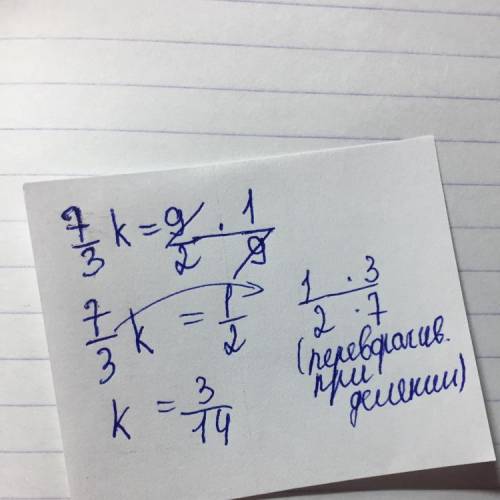 7/3 k = 9/2 · 1/9
7/3 k = 1/2
1 · 3 / 2 · 7
(переворачив.
при
делении)
k = 3/14